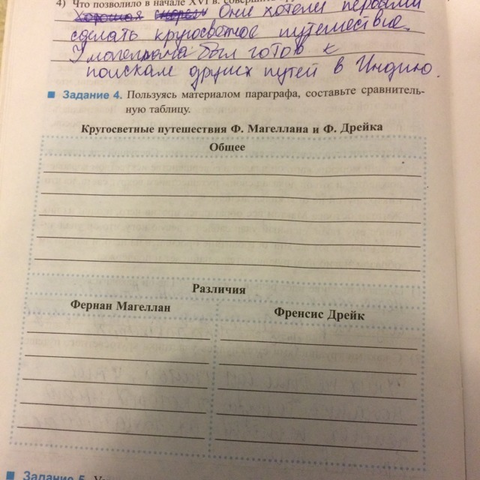 4) Что позволило в начале XVI в. совершить
Они хотели первыми
сделать кругосветное путешествие.
был готов к
поискам других путей в Индию.
Задание 4. Пользуясь материалом параграфа, составьте сравнитель-
ную таблицу.
Кругосветные путешествия Ф. Магеллана и Ф. Дрейка
Общее
Различия
Фернан Магеллан Френсис Дрейк
Задание 5.